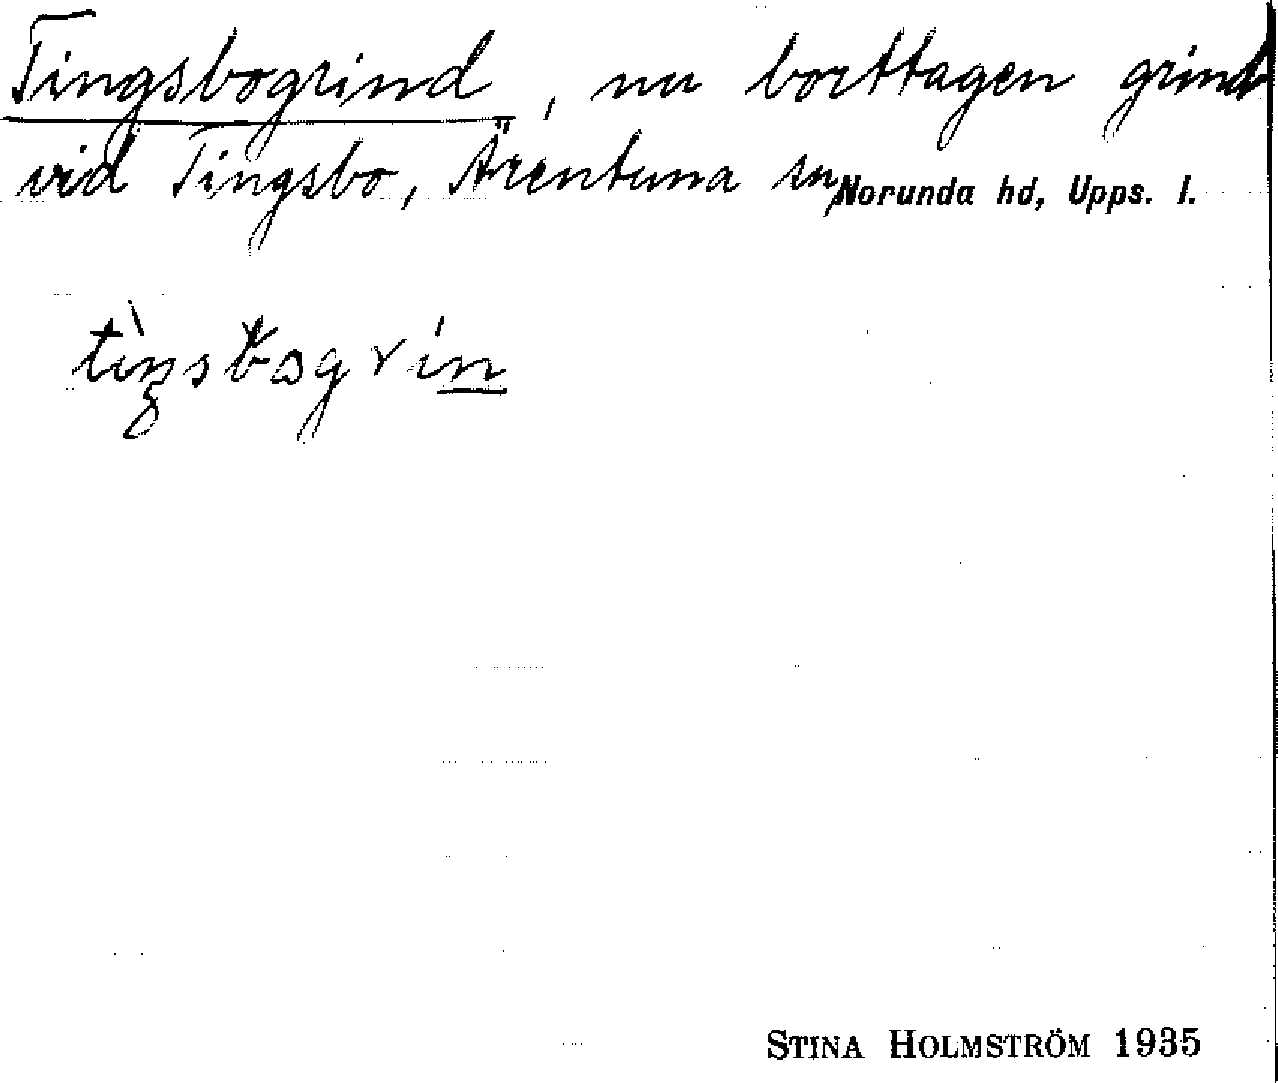 Tingsbogrind, nu borttagen grind
vid Tingsbo, Ärentuna sn, Norunda hd, Upps. l.
STINA HOLMSTRÖM 1935